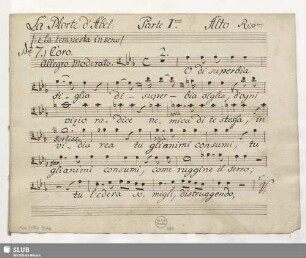 La Morte d'Abel. Parte I.ma Alto Rip.no
e la tempesta in seno.
No. 7. Coro.
Allegro Moderato. 2.
O di superbia
fi- glia di- super- bia figlia, d'ogni
vizio ra- dice ne- mica di te stessa, in-
vi- dia rea tu gli animi consumi, tu
gli animi consumi, come ruggine il ferro,
tu l'edera so- migli, distruggendo,
SLUB